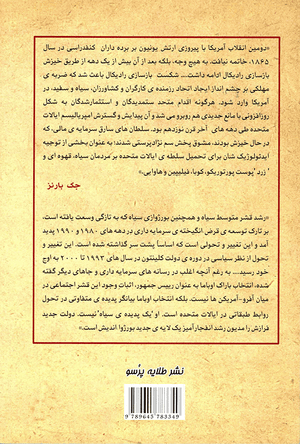 «دومین انقلاب آمریکا با پیروزی ارتش یونیون بر برده داران کنفدراسی در سال
۱۸۶۵، خاتمه نیافت. به هیچ وجه، بلکه بعد از آن بیش از یک دهه از طریق خیزش
بازسازی رادیکال ادامه داشت... شکست بازسازی رادیکال باعث شد که ضربه ی
مهلکی بر چشم انداز ایجاد اتحاد رزمنده ی کارگران و کشاورزان، سیاه و سفید، در
آمریکا وارد شود. هرگونه اقدام متحد ستمدیدگان و استثمارشدگان به شکل
روزافزونی با مانع جدیدی هم روبرو می شد و آن پیدایش و گسترش امپریالیسم ایالات
متحده طی دهه های آخر قرن نوزدهم بود. سلطان های سارق سرمایه ی مالی، که
در حال خیزش بودند، مشوق پخش سم نژادپرستی شدند؛ به عنوان بخشی از توجیه
ایدئولوژیک شان برای تحمیل سلطه ی ایالات متحده بر مردمان سیاه، قهوه ای و
'زرد' پوست پورتوریکو، کوبا، فیلیپین و هاوایی.»
جک بارنز
«رشد قشر متوسط سیاه و همچنین بورژوازی سیاه که به تازگی وسعت یافته است،
بر تارک توسعه ی قرض انگیخته ی سرمایه داری در دهه های ۱۹۸۰ و ۱۹۹۰ پدید
آمد و این تغییر و تحولی است که اساساً پشت سر گذاشته شده است. این تغییر و
تحول از نظر سیاسی در دوره ی دولت کلینتون در سال های ۱۹۹۳ تا ۲۰۰۰ به اوج
خود رسید... به رغم آنچه اغلب در رسانه های سرمایه داری و جاهای دیگر گفته
شده، انتخاب باراک اوباما به عنوان رییس جمهور، اثبات وجود این قشر اجتماعی در
میان آفرو-آمریکن ها نیست. بلکه انتخاب اوباما بیانگر پدیده ی متفاوتی در تحول
روابط طبقاتی در ایالات متحده است. او 'یک پدیده ی سیاه' نیست. دولت جدید
فرازش را مدیون رشد انفجارآمیز یک لایه ی جدید بورژوا اندیش است.»
نشر طلایه پرسو
9 789645 783349